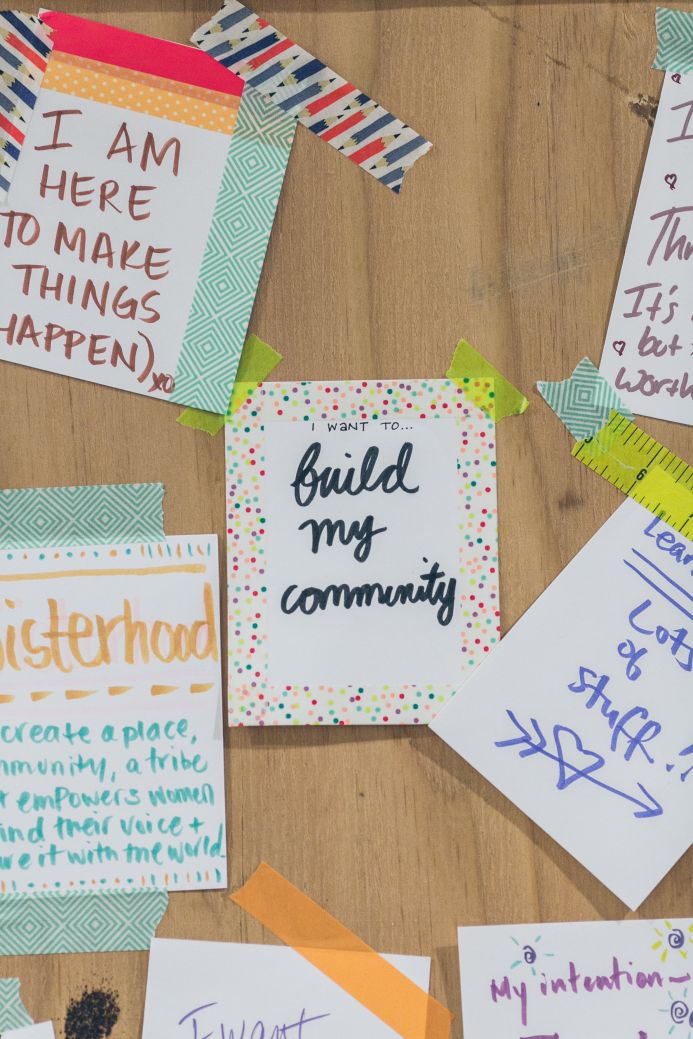 I AM
HERE
TO MAKE
THINGS
HAPPEN)
xo
I
Thr
It's
but
worth
I WANT TO...
build
my
community
5
6
Lear
Lots
of
stuff!
Sisterhood
create a place,
mmunity, a tribe
empowers women
ind their voice +
are it with the world
I want
My intention-